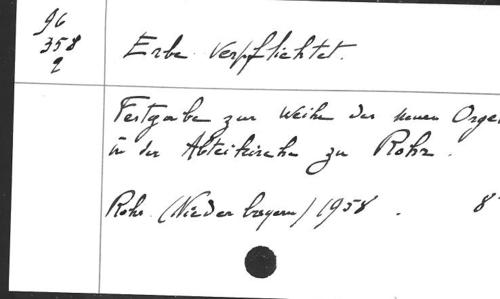 96
358
2
Erbe verpflichtet.
Festgabe zur Weihe der neuen Orgel
in der Abteikirche zu Rohr.
Rohr. (Niederbayern) 1958. 8°